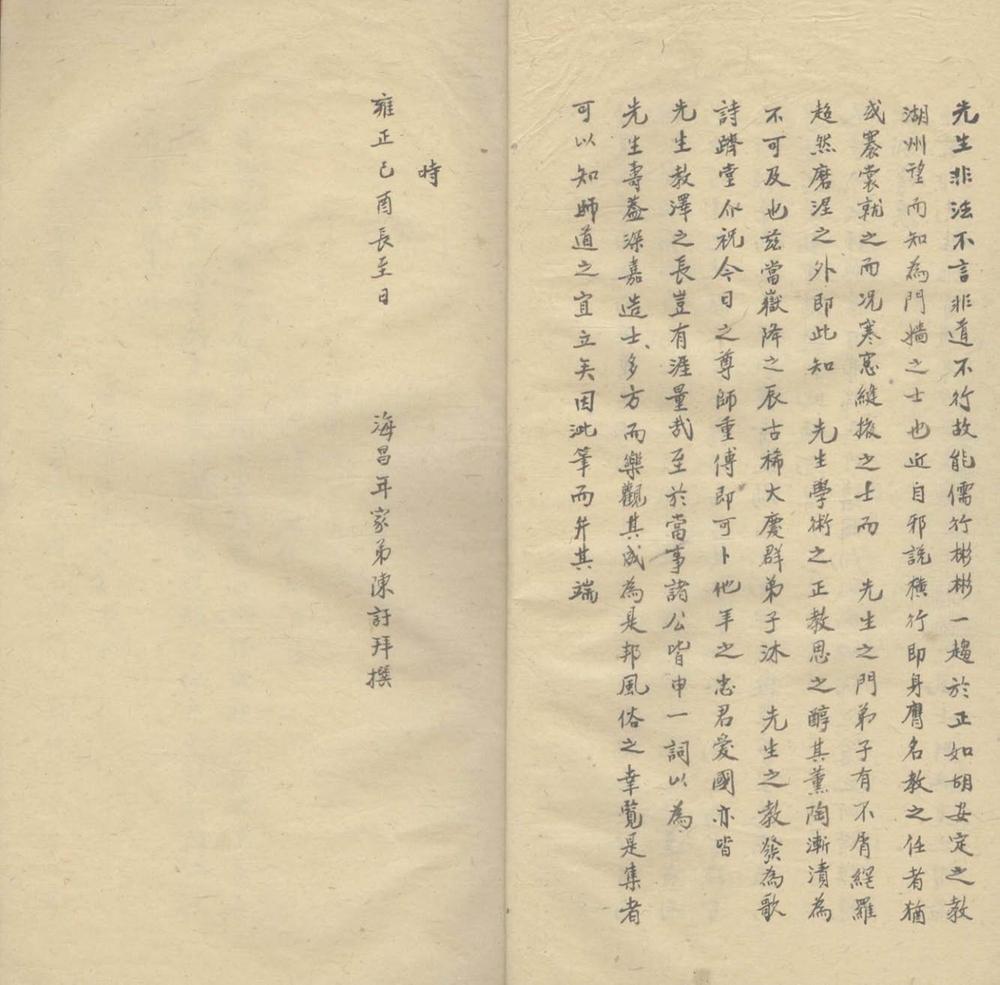 先生非法不言非道不行故能儒行彬彬一趨於正如胡安定之教
湖州望而知為門墻之士也近自邪說橫行即身膺名教之任者猶
或褰裳就之而况寒窓縫掖之士而　先生之門弟子有不屑經羅
超然磨涅之外即此知　先生學術之正教思之醇其薰陶漸漬為
不可及也茲當嶽降之辰古稀大慶群弟子沐　先生之教發為歌
詩躋堂介祝今日之尊師重傅即可卜他年之忠君愛國亦皆
先生教澤之長豈有涯量哉至於當事諸公皆申一詞以為
先生壽葢深嘉造士多方而樂觀其成為是邦風俗之幸覽是集者
可以知師道之宜立矣因泚筆而弁其端
時
雍正己酉長至日　海昌年家弟陳訏拜撰